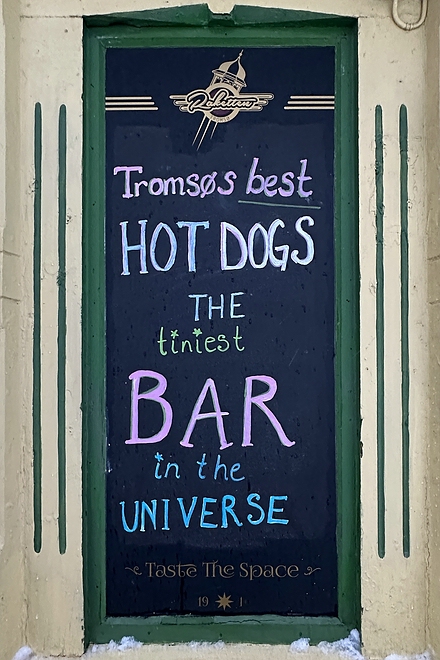 Raketten
Tromsøs best
HOT DOGS
THE
tiniest
BAR
in the
UNIVERSE
Taste The Space
19